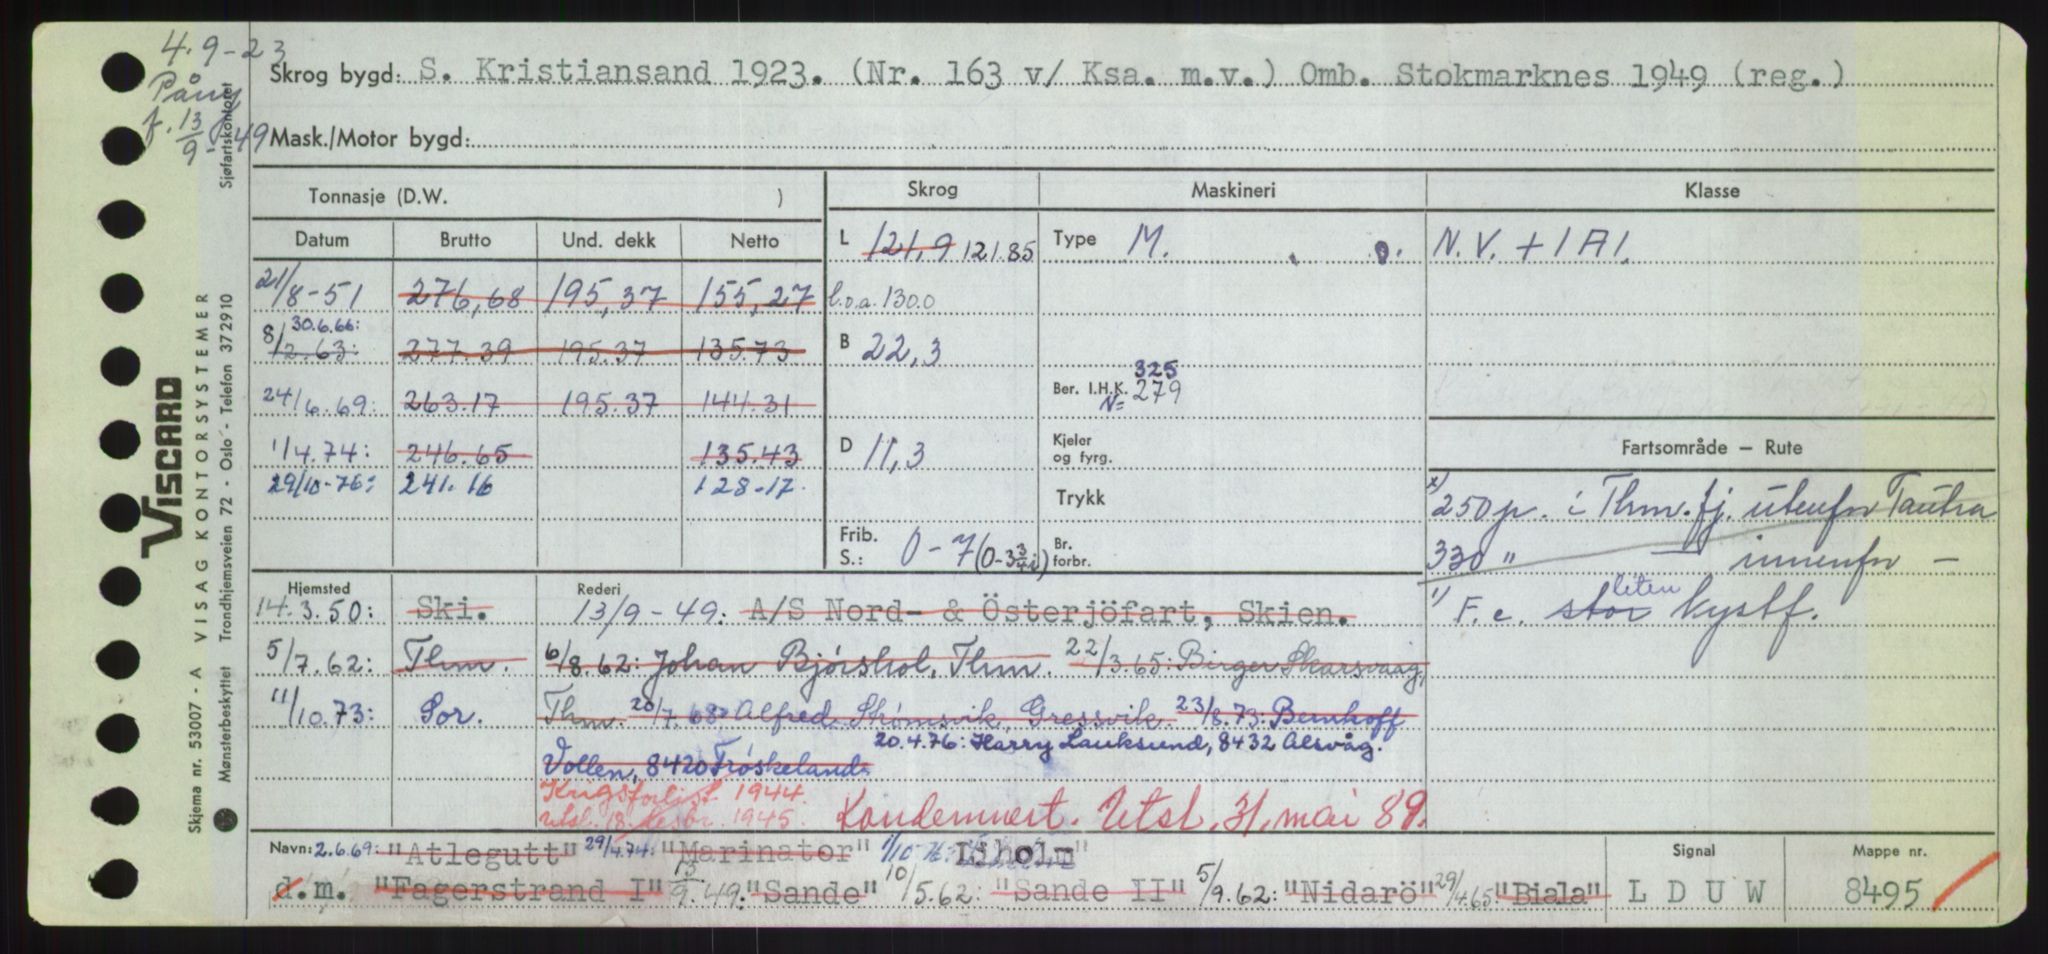 4.9-23
Påny
f. 13/9-49
Skrog bygd: S. Kristiansand 1923. (Nr. 163 v/ Ksa. m.v.) Omb. Stokmarknes 1949 (reg.)
Mask./Motor bygd:
Sjøfartskontoret
Tonnasje (D.W. )
Datum Brutto Und. dekk Netto
21/8-51 276,68 195,37 155,27
30.6.66:
8/2.63: 277.39 195.37 135.73
24/6.69: 263.17 195.37 144.31
1/4.74: 246.65 135.43
29/10-76: 241.16 128-17.
Skrog
L 121,9 121.85
l.o.a. 130.0
B 22,3
D 11,3
Frib.
S.: 0-7 (0-3 3/4 i)
Maskineri
Type M.
325
Ber. I.H.K. 279
N=
Kjeler
og fyrg.
Trykk
Br.
forbr.
Klasse
N.V. + 1A1.
Fartsområde — Rute
x) 250 p. i Thm.fj. utenfor Tautra
330 " — innenfor —
liten
1) F.c. stor kystf.
Hjemsted
14.3.50: Ski.
5/7.62: Thm.
11/10.73: Sor.
Rederi
13/9-49: A/S Nord- & Österjöfart, Skien.
6/8.62: Johan Bjørshol, Thm. 22/3.65: Birger Skarsvaag,
Thm. 20/7.68: Alfred Strømsvik, Gressvik. 23/8.73: Bernhoff
20.4.76: Harry Lauksund, 8432 Alsvåg.
Vollen, 8420 Frøskeland
Krigsforlist 1944.
utsl. 18. desbr. 1945.
Kondemnert. Utsl. 31. mai 89.
Navn: 2.6.69: "Atlegutt" 29/4.74: "Marinator" 1/10 76 Liholm"
d.m. "Fagerstrand I" 13/9.49: "Sande" 10/5.62: "Sande II" 5/9.62: "Nidarö" 29/4.65: "Biala"
Signal
L D U W
Mappe nr.
8495
VISCARD
Skjema nr. 53007 - A VISAG KONTORSYSTEMER
Mønsterbeskyttet Trondhjemsveien 72 - Oslo - Telefon 372910